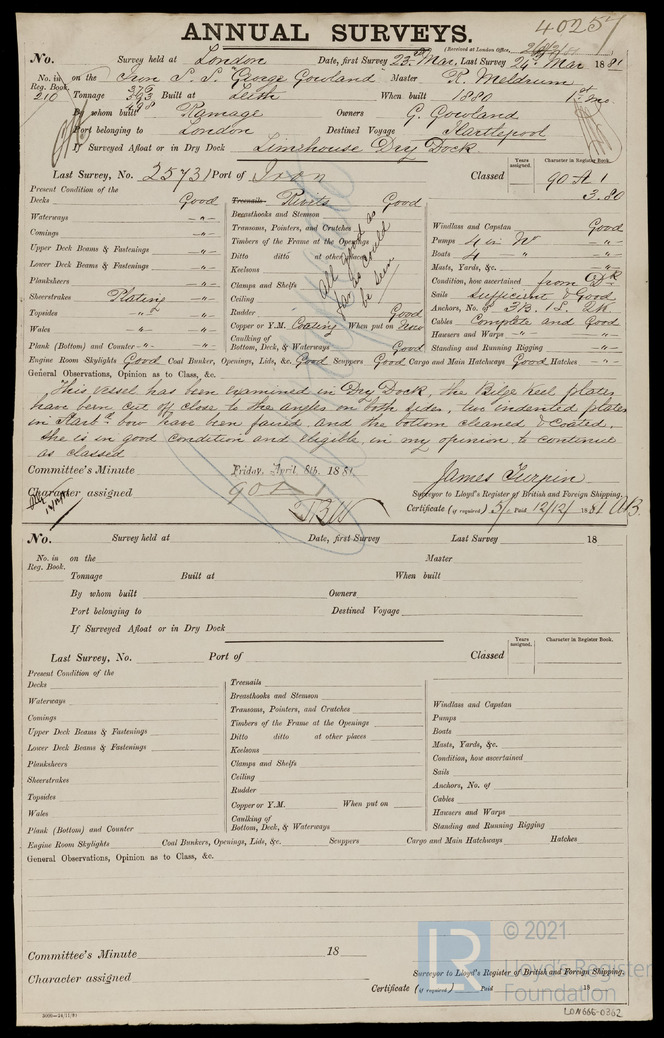 40257
ANNUAL SURVEYS.
(Received at London Office,
No. Survey held at London Date, first Survey 23rd Mar. Last Survey 24th Mar 1881
No. in Reg. Book. on the Iron S.S. "George Gowland" Master R. Meldrum
210 Tonnage Built at Leith When built 1880 1st mo.
By whom built Ramage Owners G. Gowland
Port belonging to London Destined Voyage Hartlepool
If Surveyed Afloat or in Dry Dock Limehouse Dry Dock.
Last Survey, No. 25731 Port of Iron Classed Years assigned. Character in Register Book. 90 A 1
3.80
Present Condition of the
Decks Good
Waterways -"-
Comings -"-
Upper Deck Beams & Fastenings -"-
Lower Deck Beams & Fastenings -"-
Planksheers -"-
Sheerstrakes Plating -"-
Topsides -"- -"-
Wales -"- -"-
Plank (Bottom) and Counter -"- -"-
Treenails Rivits Good
Breasthooks and Stemson
Transoms, Pointers, and Crutches
Timbers of the Frame at the Openings
Ditto ditto at other places
Keelsons
Clamps and Shelfs
Ceiling
All good as far as could be seen
Rudder Good
Copper or Y.M. Coating When put on New
Caulking of Bottom, Deck, & Waterways Good
Windlass and Capstan Good
Pumps 4 in No -"-
Boats 4 " -"-
Masts, Yards, &c. -"-
Condition, how ascertained from Dk
Sails Sufficient & Good
Anchors, No. of 3B. 1S. 2K.
Cables Complete and Good
Hawsers and Warps -"-
Standing and Running Rigging -"-
Engine Room Skylights Good Coal Bunker, Openings, Lids, &c. Good Scuppers Good Cargo and Main Hatchways Good Hatches -"-
General Observations, Opinion as to Class, &c.
This vessel has been examined in Dry Dock, the Bilge Keel plates
have been cut off close to the angles on both sides, two indented plates
in Starbd bow have been faired and the bottom cleaned & coated.
She is in good condition and eligible in my opinion to continue
as classed
Committee's Minute Friday, April 8th, 1881
Character assigned 90 A 1
James Turpin
Surveyor to Lloyd's Register of British and Foreign Shipping.
Certificate (if required) 5/- Paid 12/12/ 1881
No. Survey held at Date, first Survey Last Survey 18
No. in Reg. Book. on the Master
Tonnage Built at When built
By whom built Owners
Port belonging to Destined Voyage
If Surveyed Afloat or in Dry Dock
Last Survey, No. Port of Classed Years assigned. Character in Register Book.
Present Condition of the
Decks
Waterways
Comings
Upper Deck Beams & Fastenings
Lower Deck Beams & Fastenings
Planksheers
Sheerstrakes
Topsides
Wales
Plank (Bottom) and Counter
Treenails
Breasthooks and Stemson
Transoms, Pointers, and Crutches
Timbers of the Frame at the Openings
Ditto ditto at other places
Keelsons
Clamps and Shelfs
Ceiling
Rudder
Copper or Y.M. When put on
Caulking of Bottom, Deck, & Waterways
Windlass and Capstan
Pumps
Boats
Masts, Yards, &c.
Condition, how ascertained
Sails
Anchors, No. of
Cables
Hawsers and Warps
Standing and Running Rigging
Engine Room Skylights Coal Bunkers, Openings, Lids, &c. Scuppers Cargo and Main Hatchways Hatches
General Observations, Opinion as to Class, &c.
Committee's Minute 18
Character assigned
Surveyor to Lloyd's Register of British and Foreign Shipping.
Certificate (if required) Paid 18
LR
© 2021
Lloyd's Register
Foundation
LDN666-0362